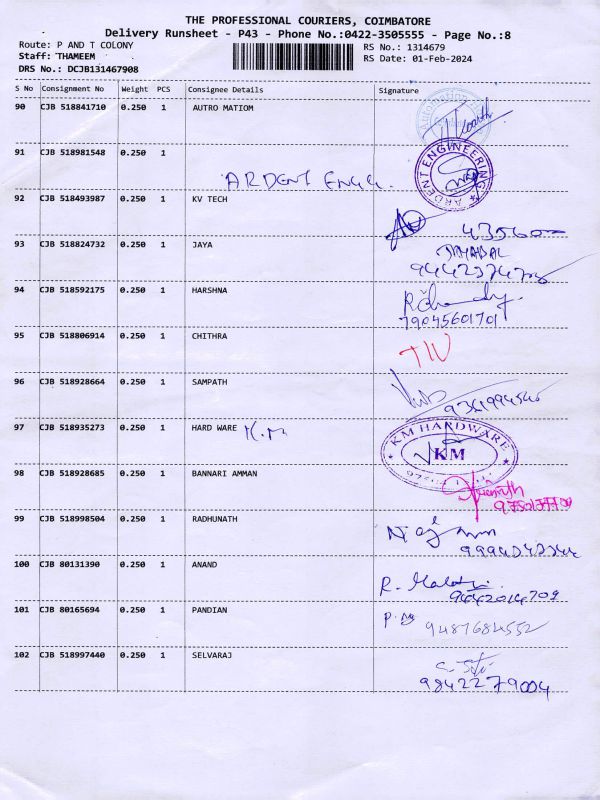 THE PROFESSIONAL COURIERS, COIMBATORE
Delivery Runsheet - P43 - Phone No.:0422-3505555 - Page No.:8
Route: P AND T COLONY
RS No.: 1314679
Staff: THAMEEM
RS Date: 01-Feb-2024
DRS No.: DCJB131467908
S No Consignment No Weight PCS Consignee Details Signature
90 CJB 518841710 0.250 1 AUTRO MATIOM
91 CJB 518981548 0.250 1
ARDENT ENGG.
ARDENT ENGINEERING
92 CJB 518493987 0.250 1 KV TECH
435600
93 CJB 518824732 0.250 1 JAYA
94 CJB 518592175 0.250 1 HARSHNA
79045601701
95 CJB 518806914 0.250 1 CHITHRA
96 CJB 518928664 0.250 1 SAMPATH
97 CJB 518935273 0.250 1 HARD WARE K.M
KM HARDWARE
KM
98 CJB 518928685 0.250 1 BANNARI AMMAN
99 CJB 518998504 0.250 1 RADHUNATH
100 CJB 80131390 0.250 1 ANAND
R.
9442014709
101 CJB 80165694 0.250 1 PANDIAN
9487684552
102 CJB 518997440 0.250 1 SELVARAJ
9842279004